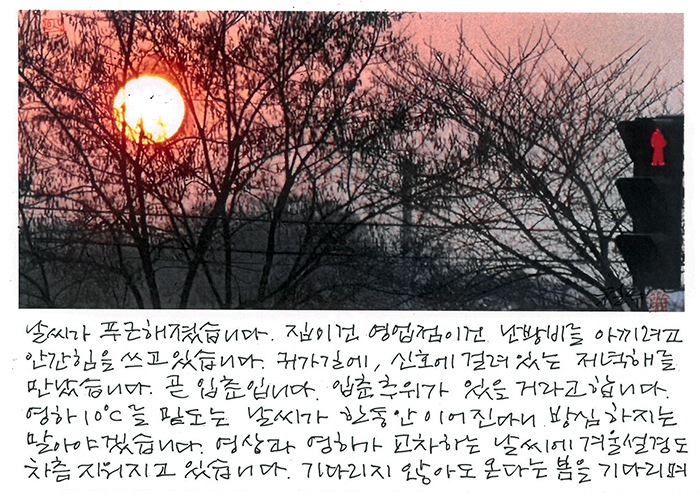 날씨가 푸근해졌습니다. 집이건 영업점이건 난방비를 아끼려고
안간힘을 쓰고 있습니다. 귀가길에, 신호에 걸려 있는 저녁해를
만났습니다. 곧 입춘입니다. 입춘추위가 있을 거라고 합니다.
영하 10℃를 밑도는 날씨가 한동안 이어진다니 방심하지는
말아야겠습니다. 영상과 영하가 교차하는 날씨에 겨울설경도
차츰 지워지고 있습니다. 기다리지 않아도 온다는 봄을 기다리며